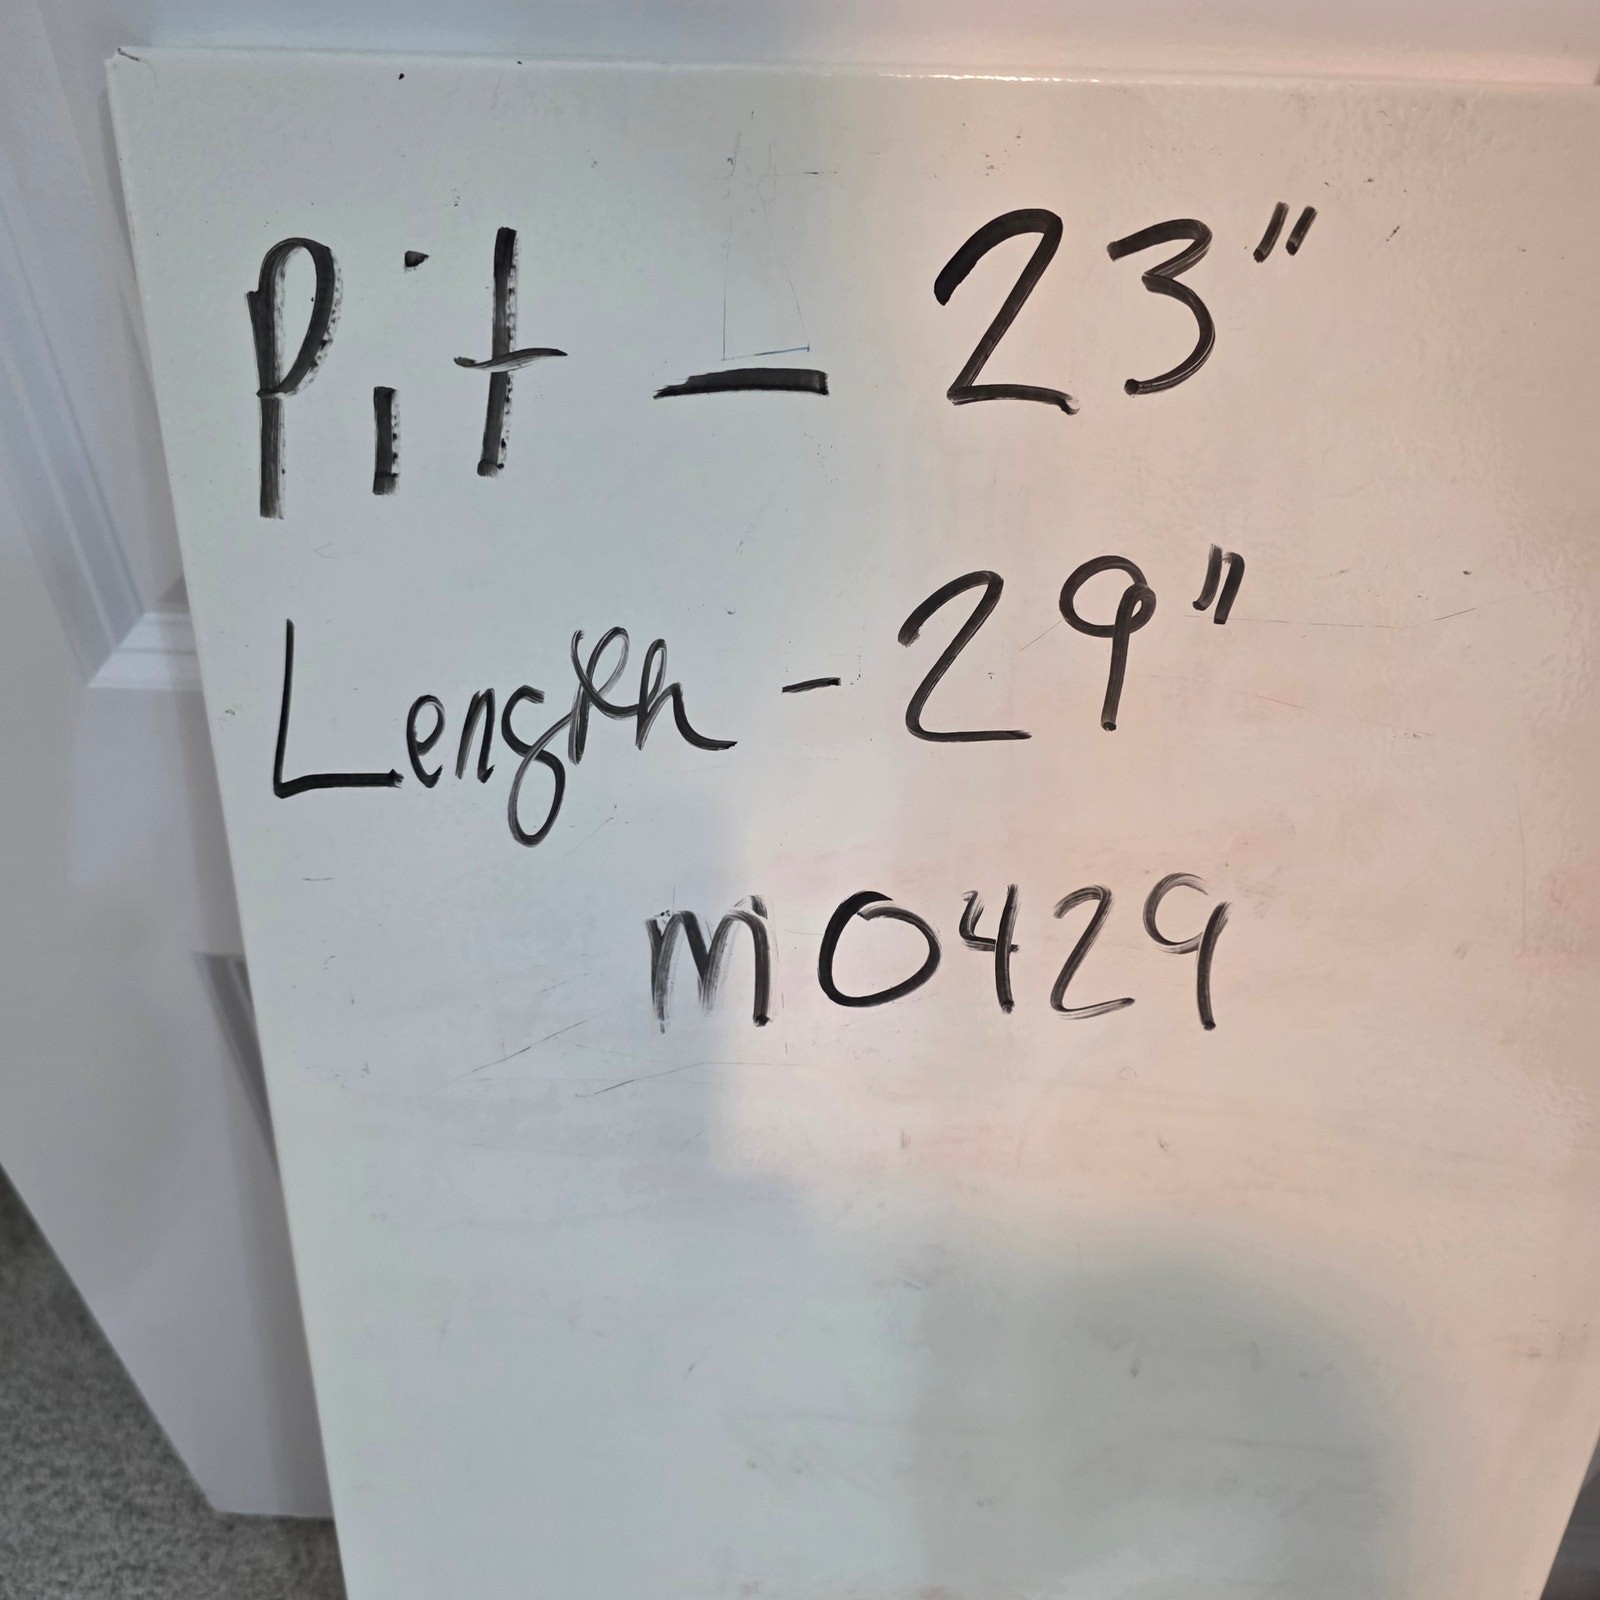 Pit - 23"
Length - 29"
M0429